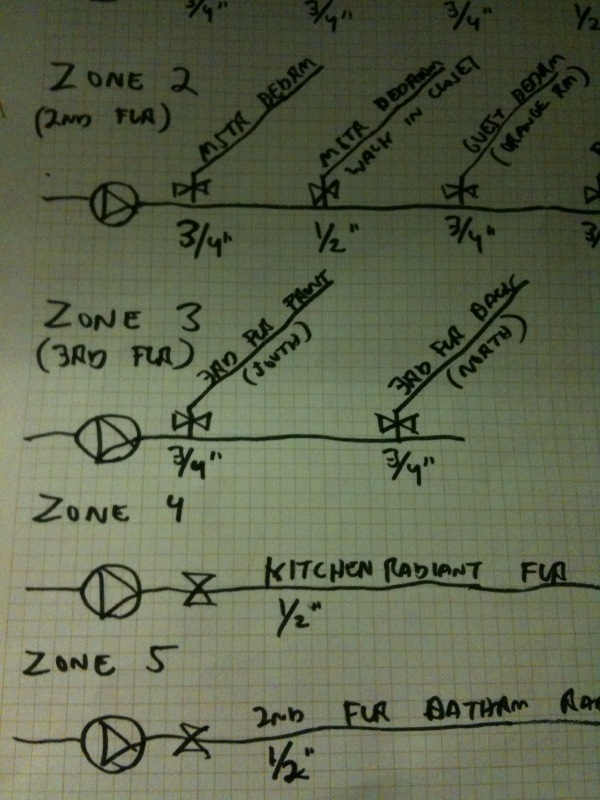 3/4" 3/4" 3/4" 1/2
ZONE 2
(2ND FLR)
MSTR BEDRM
MSTR BEDRM
WALK IN CLOSET
GUEST BEDRM
(ORANGE RM)
3/4" 1/2" 3/4" 3/4
ZONE 3
(3RD FLR)
3RD FLR FRONT
(SOUTH)
3RD FLR BACK
(NORTH)
3/4" 3/4"
ZONE 4
KITCHEN RADIANT FLR
1/2"
ZONE 5
2ND FLR BATHRM RA
1/2"